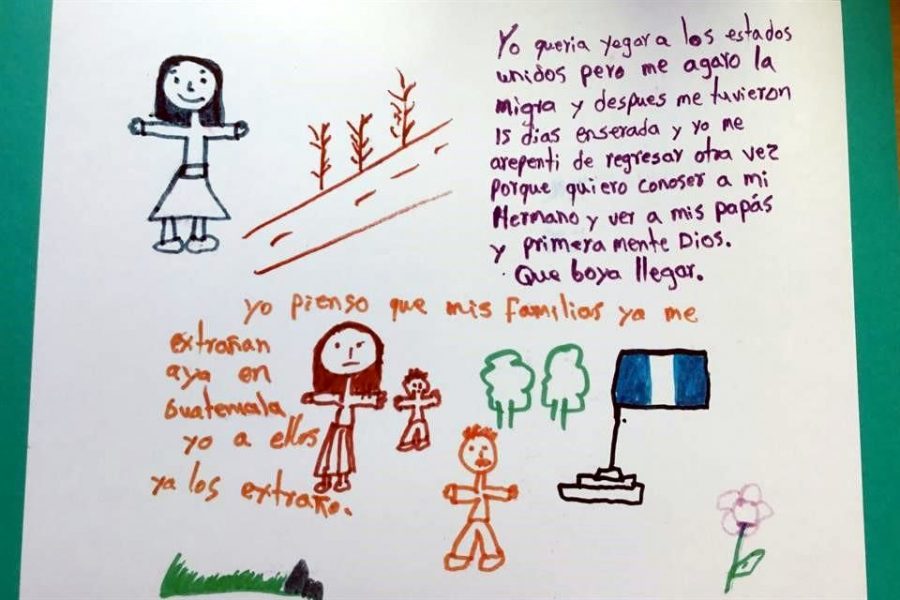 Yo queria yegar a los estados
unidos pero me agaro la
migra y despues me tuvieron
15 dias enserada y yo me
arepenti de regresar otra vez
porque quiero conoser a mi
Hermano y ver a mis papás
y primera mente Dios.
Que boya llegar.
yo pienso que mis familias ya me
extrañan
aya en
Guatemala
yo a ellos
ya los extraño.